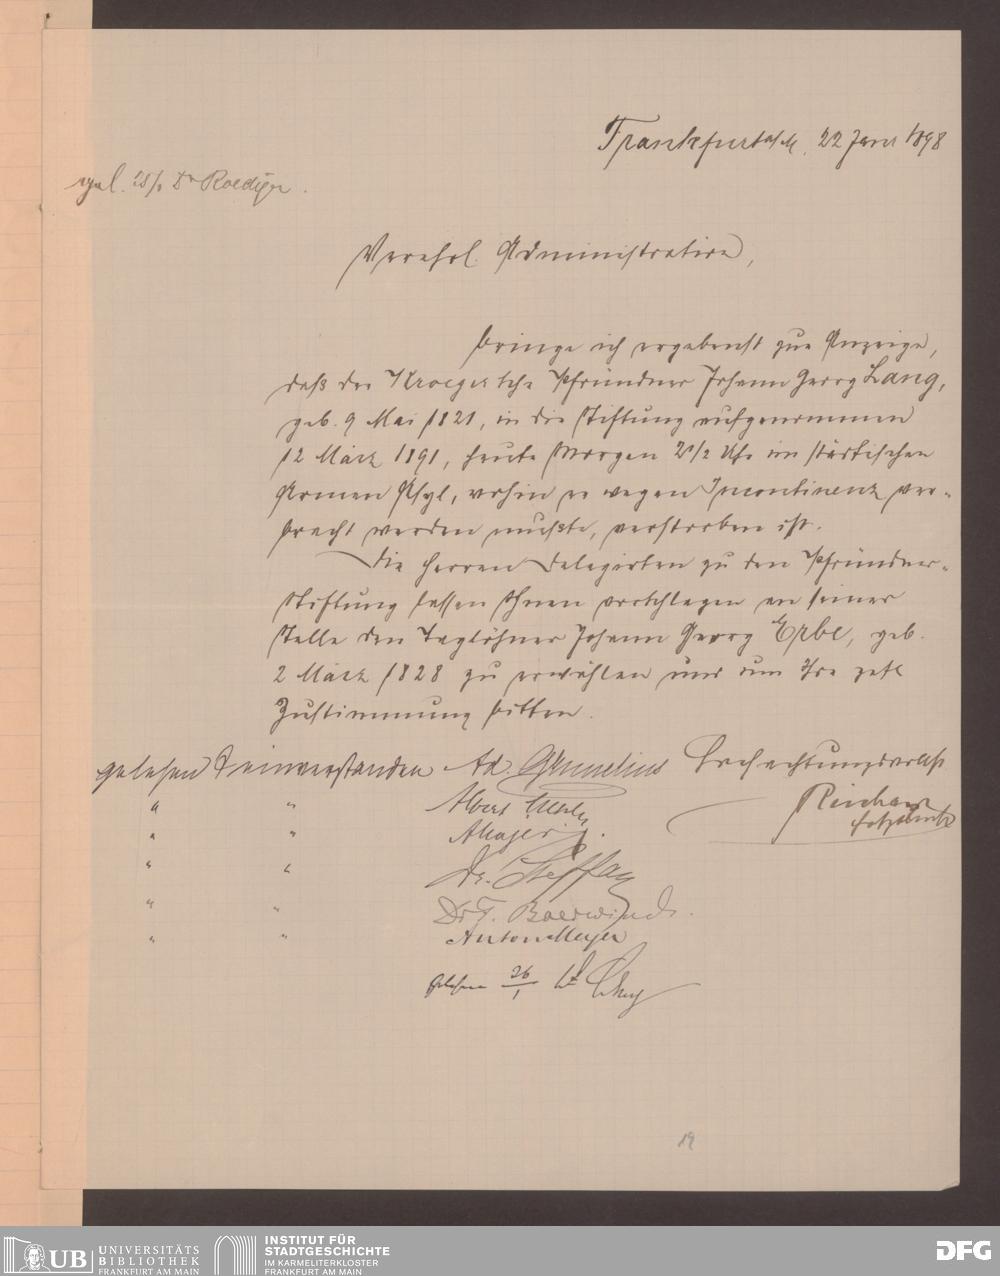 Frankfurt a/M. 22 Janr 1898
gel. 25/1 Dr Roediger.
Verehrl. Administration,
bringe ich ergebenst zur Anzeige,
daß der Kroeger'sche Pfründner Johann Georg Lang,
geb. 9 Mai 1821, in die Stiftung aufgenommen
12 März 1891, heute Morgen 2 1/2 Uhr im städtischen
Armen Asyl, wohin er wegen Incontinenz ver-
bracht werden mußte, verstorben ist.
Die Herren Delegirten zu den Pfründner-
Stiftung lassen Ihnen vorschlagen an seiner
Stelle den Taglöhner Johann Georg Erbe, geb.
2 März 1828 zu erwählen und um Ihre gefl
Zustimmung bitten.
gelesen & einverstanden Ad. Grunelius Hochachtungsvollst
" " Albert Reichard
" " A Majer
" " Dr. Steffan
" " Dr F. Boerwindt.
" " Anton Meyer
Gelesen 26/1
19
UB UNIVERSITÄTS
BIBLIOTHEK
FRANKFURT AM MAIN
INSTITUT FÜR
STADTGESCHICHTE
IM KARMELITERKLOSTER
FRANKFURT AM MAIN
DFG